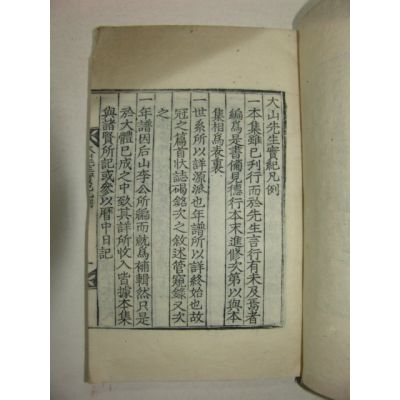 大山先生實紀凡例
一本集雖已刊行而於先生言行有未及焉者
編爲是書備見德行本末進修次第以與本
集相爲表裏
一世系所以詳源派也年譜所以詳終始也故
冠之篇首狀誌碣銘次之敘述管窺錄又次
之
一年譜因后山李公所編而就爲補輯然只是
於大體已成之中致其詳所收入皆據本集
與諸賢所記或參以曆中日記